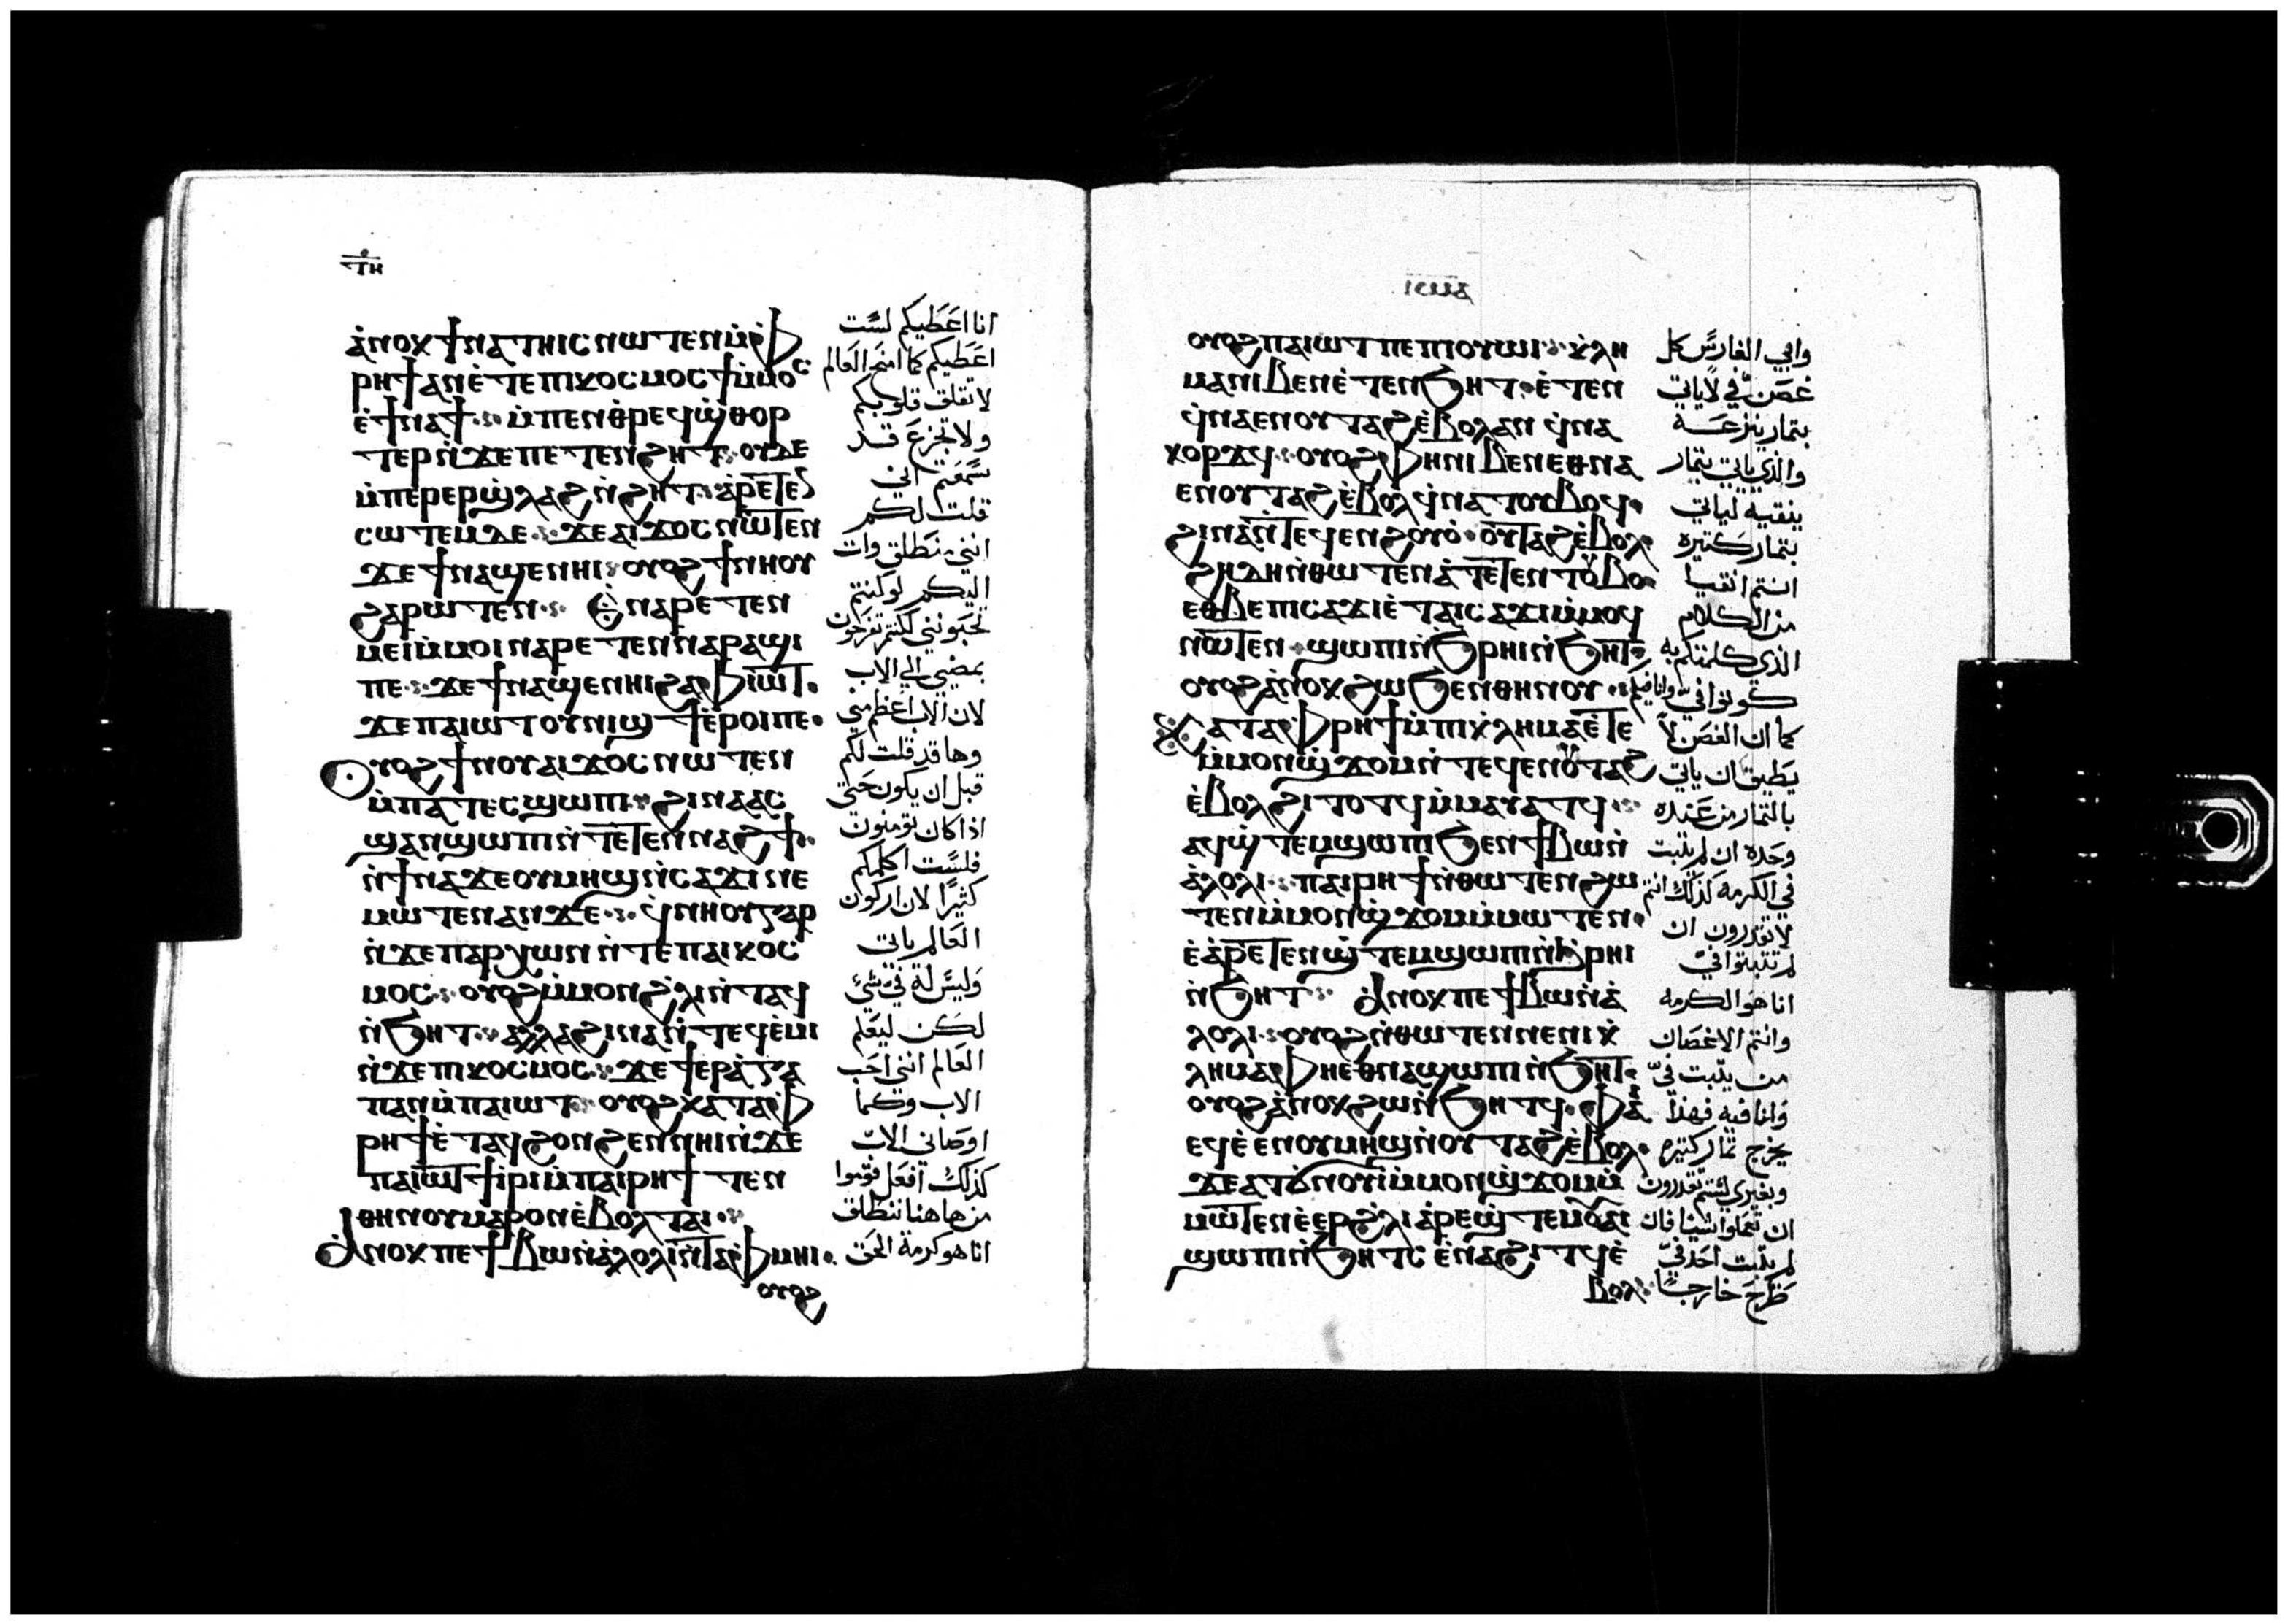 ⲧⲏ
ⲁ̀ⲛⲟⲕ ϯⲛⲁⲧⲏⲓⲥ ⲛⲱⲧⲉⲛ ⲙ̀ⲫ
ⲣⲏϯ ⲁⲛ ⲉ̀ⲧⲉ ⲡⲓⲕⲟⲥⲙⲟⲥ ϯ ⲙ̀ⲙⲟⲥ
ⲉ̀ϯⲛⲁϯ ⲙ̀ⲡⲉⲛⲑⲣⲉϥϣ̀ⲑⲟⲣ
ⲧⲉⲣ ⲛ̀ϫⲉ ⲡⲉⲧⲉⲛϩⲏⲧ ⲟⲩⲇⲉ
ⲙ̀ⲡⲉⲣⲉⲣϣ̀ⲗⲁϩ ⲛ̀ϩⲏⲧ ⲁ̀ⲣⲉⲧⲉⲛ
ⲥⲱⲧⲉⲙ ⲇⲉ ϫⲉ ⲁⲓϫⲟⲥ ⲛⲱⲧⲉⲛ
ϫⲉ ϯⲛⲁϣⲉⲛⲏⲓ ⲟⲩⲟϩ ϯⲛⲏⲟⲩ
ϩⲁⲣⲱⲧⲉⲛ ⲉ̀ⲛⲁⲣⲉⲧⲉⲛ
ⲙⲉⲓ ⲙ̀ⲙⲟⲓ ⲛⲁⲣⲉⲧⲉⲛⲛⲁⲣⲁϣⲓ
ⲡⲉ ϫⲉ ϯⲛⲁϣⲉⲛⲏⲓ ϩⲁ ⲫⲓⲱⲧ
ϫⲉ ⲡⲁⲓⲱⲧ ⲟⲩⲛⲓϣϯ ⲉ̀ⲣⲟⲓ ⲡⲉ
ⲟⲩⲟϩ ϯⲛⲟⲩ ⲁⲓϫⲟⲥ ⲛⲱⲧⲉⲛ
ⲙ̀ⲡⲁⲧⲉⲥϣⲱⲡⲓ ϩⲓⲛⲁ ⲁⲥ
ϣⲁⲛϣⲱⲡⲓ ⲛ̀ⲧⲉⲧⲉⲛⲛⲁϩϯ
ⲛ̀ϯⲛⲁϫⲉ ⲟⲩⲙⲏϣ ⲛ̀ⲥⲁϫⲓ ⲛⲉ
ⲙⲱⲧⲉⲛ ⲁⲛ ϫⲉ ϥ̀ⲛⲏⲟⲩ ⲅⲁⲣ
ⲛ̀ϫⲉ ⲡⲁⲣⲭⲱⲛ ⲛ̀ⲧⲉ ⲡⲁⲓⲕⲟⲥ
ⲙⲟⲥ ⲟⲩⲟϩ ⲙ̀ⲙⲟⲛ ϩ̀ⲗⲓ ⲛ̀ⲧⲁϥ
ⲛ̀ϧⲏⲧ ⲁⲗⲗⲁ ϩⲓⲛⲁ ⲛ̀ⲧⲉϥⲉ̀ⲙⲓ
ⲛ̀ϫⲉ ⲡⲓⲕⲟⲥⲙⲟⲥ ϫⲉ ϯⲉⲣⲁ̀ⲅⲁ
ⲡⲁⲛ ⲙ̀ⲡⲁⲓⲱⲧ ⲟⲩⲟϩ ⲕⲁⲧⲁ ⲫ
ⲣⲏϯ ⲉ̀ⲧⲁϥϩⲟⲛϩⲉⲛ ⲛⲏⲓ ⲛ̀ϫⲉ
ⲡⲁⲓⲱⲧ ϯⲓⲣⲓ ⲙ̀ⲡⲁⲓⲣⲏϯ ⲧⲉⲛ
ⲑⲏⲛⲟⲩ ⲙⲁⲣⲟⲛ ⲉ̀ⲃⲟⲗ ⲧⲁⲓ
ⲁ̀ⲛⲟⲕ ⲡⲉ ϯⲃⲱ ⲛ̀ⲁ̀ⲗⲟⲗⲓ ⲛ̀ⲧⲁⲫⲙⲏⲓ
ⲟⲩⲟϩ
انا اعطيكم لست
اعطيكم كما امنح العالم
لا تقلق قلوبكم
ولا تجزع قد
سمعتم اني
قلت لكم
انني منطلق وات
اليكم لو كنتم
تحبونني لكنتم تفرحون
بمضيي الي الاب
لان الاب اعظم مني
وها قد قلت لكم
قبل ان يكون حتى
اذا كان تومنون
فلست اكلمكم
كثيرًا لان اركون
العالم ياتي
وليس له في شئ
لكن ليعلم
العالم انني احب
الاب وكما
اوصاني الاب
كذلك افعل قوموا
من هاهنا ننطلق
انا هو كرمة الحق
ⲟⲩⲟϩ ⲡⲁⲓⲱⲧ ⲡⲉ ⲡⲓⲟⲩⲱⲓ ⲕ̀ⲗⲏ
ⲙⲁ ⲛⲓⲃⲉⲛ ⲉ̀ⲧⲉⲛϧⲏⲧ ⲉ̀ⲧⲉⲛ
ϥ̀ⲛⲁⲉⲛⲟⲩⲧⲁϩ ⲉ̀ⲃⲟⲗ ⲁⲛ ϥ̀ⲛⲁ
ⲕⲟⲣϫϥ ⲟⲩⲟϩ ⲫⲏ ⲛⲓⲃⲉⲛ ⲉⲑⲛⲁ
ⲉⲛⲟⲩⲧⲁϩ ⲉ̀ⲃⲟⲗ ϥ̀ⲛⲁⲧⲟⲩⲃⲟϥ
ϩⲓⲛⲁ ⲛ̀ⲧⲉϥⲉⲛ ϩⲟⲩⲟ̀ ⲟⲩⲧⲁϩ ⲉ̀ⲃⲟⲗ
ϩⲏⲇⲏ ⲛ̀ⲑⲱⲧⲉⲛ ⲁ̀ⲧⲉⲧⲉⲛⲧⲟⲩⲃⲟ
ⲉⲑⲃⲉ ⲡⲓⲥⲁϫⲓ ⲉ̀ⲧⲁⲓⲥⲁϫⲓ ⲙ̀ⲙⲟϥ
ⲛⲱⲧⲉⲛ ϣⲱⲡⲓ ⲛ̀ϧⲣⲏⲓ ⲛ̀ϧⲏⲧ
ⲟⲩⲟϩ ⲁ̀ⲛⲟⲕ ϩⲱ ϧⲉⲛ ⲑⲏⲛⲟⲩ
ⲕⲁⲧⲁ ⲫⲣⲏϯ ⲙ̀ⲡⲓⲕ̀ⲗⲏⲙⲁ ⲉ̀ⲧⲉ
ⲙ̀ⲙⲟⲛ ϣ̀ϫⲟⲙ ⲛ̀ⲧⲉϥⲉⲛⲟⲩⲧⲁϩ
ⲉ̀ⲃⲟⲗ ϩⲓⲧⲟⲧϥ ⲙ̀ⲙⲁⲩⲁⲧϥ
ⲁϥϣ̀ⲧⲉⲙϣⲱⲡⲓ ϧⲉⲛ ϯⲃⲱ ⲛ̀
ⲁ̀ⲗⲟⲗⲓ ⲡⲁⲓⲣⲏϯ ⲛ̀ⲑⲱⲧⲉⲛ ϩⲱ
ⲧⲉⲛ ⲙ̀ⲙⲟⲛ ϣ̀ϫⲟⲙ ⲙ̀ⲙⲱⲧⲉⲛ
ⲉ̀ⲁ̀ⲣⲉⲧⲉⲛϣ̀ⲧⲉⲙϣⲱⲡⲓ ⲛ̀ϧ̀ⲣⲏⲓ
ⲛ̀ϧⲏⲧ ⲁ̀ⲛⲟⲕ ⲡⲉ ϯⲃⲱ ⲛ̀ⲁ̀
ⲗⲟⲗⲓ ⲟⲩⲟϩ ⲛ̀ⲑⲱⲧⲉⲛ ⲛⲉ ⲛⲓⲕ̀
ⲗⲏⲙⲁ ⲫⲏ ⲉⲑⲛⲁϣⲱⲡⲓ ⲛ̀ϧⲏⲧ
ⲟⲩⲟϩ ⲁ̀ⲛⲟⲕ ϩⲱ ⲛ̀ϧⲏⲧϥ ⲫⲁⲓ
ⲉϥⲉ̀ⲉⲛ ⲟⲩⲙⲏϣ ⲛ̀ⲟⲩⲧⲁϩ ⲉ̀ⲃⲟⲗ
ϫⲉ ⲁⲧϭⲛⲟⲩⲓ ⲙ̀ⲙⲟⲛ ϣ̀ϫⲟⲙ ⲙ̀
ⲙⲱⲧⲉⲛ ⲉ̀ⲉⲣ ϩ̀ⲗⲓ ⲁ̀ⲣⲉϣ̀ⲧⲉⲙ ⲟⲩⲁⲓ
ϣⲱⲡⲓ ⲛ̀ϧⲏⲧ ⲥⲉ̀ⲛⲁϩⲓⲧϥ ⲉ̀
ⲃⲟⲗ
وابي الغارس كل
غصن فيّ لا ياتي
بتمار ينزعه
والذي ياتي بتمار
ينقيه لياتي
بتمار كتيره
انتم انقيا
من الكلام
الذي كلمتكم به
كونوا فيّ وانا فيكم
كما ان الغصن لا
يطيق ان ياتي
بالتمار من عنده
وحده ان لم يتبت
في الكرمه كذلك انتم
لا تقدرون ان
لم تتبتوا فيّ
انا هو الكرمه
وانتم الاغصان
من يتبت فيّ
وانا فيه فهذا
يخرج تمار كتيره
وبغيري لستم تقدرون
ان تعملوا شيا فان
لم يتبت احد فيّ
طرح خارجًا